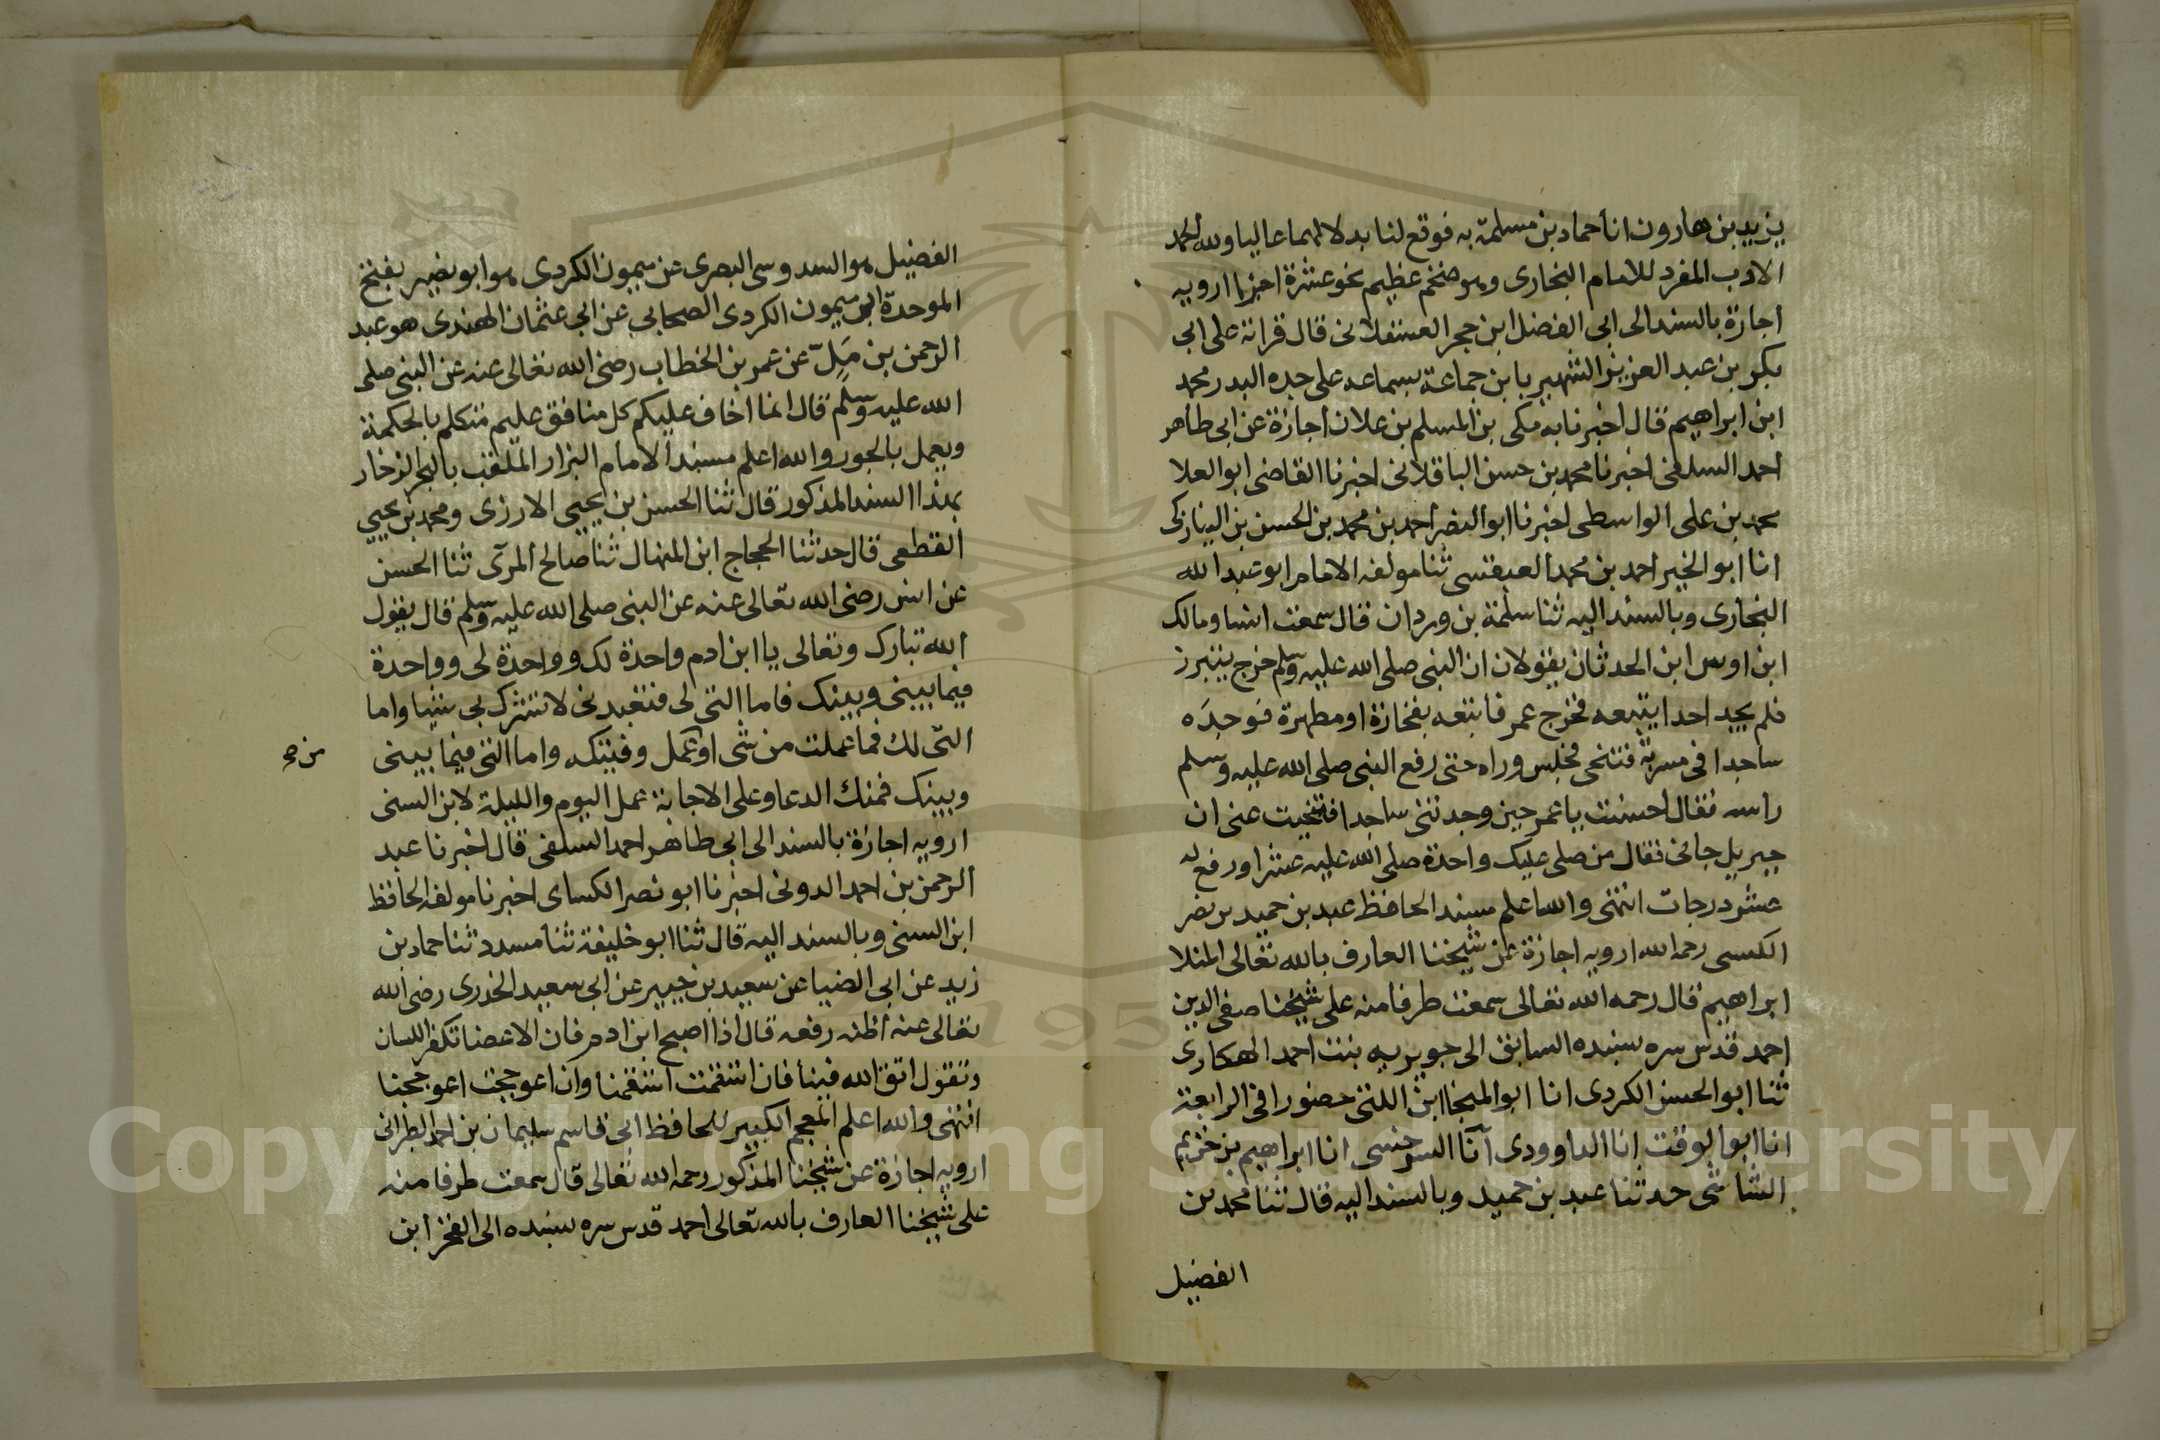 يزيد بن هارون انا حماد بن مسلمة به فوقع لنا بدلا لهما عاليا ولله الحمد
الادب المفرد للامام البخارى وهو ضخم عظيم نحو عشرة اجزا ارويه
اجازة بالسند الى ابى الفضل ابن حجر العسقلانى قال قراته على ابى
بكر بن عبد العزيز الشهير بابن جماعة بسماعه على جده البدر محمد
ابن ابراهيم قال اخبرنا به مكى بن المسلم بن علان اجازة عن ابى طاهر
احمد السلفى اخبرنا محمد بن حسن الباقلانى اخبرنا القاضى ابو العلا
محمد بن على الواسطى اخبرنا ابو النصر احمد بن محمد بن الحسن بن النيازكى
انا ابو الخير احمد بن محمد العبقسى ثنا مولفه الامام ابو عبد الله
البخارى وبالسند اليه ثنا سلمة بن وردان قال سمعت انسا ومالك
ابن اوس ابن الحدثان يقولان ان النبى صلى الله عليه وسلم خرج يتبرز
فلم يجد احدا يتبعه فخرج عمر فاتبعه بفخارة او مطهرة فوجده
ساجدا فى مسربة فتنحى فجلس وراه حتى رفع النبى صلى الله عليه وسلم
راسه فقال احسنت يا عمر حين وجدتنى ساجدا فتنحيت عنى ان
جبريل جانى فقال من صلى عليك واحدة صلى الله عليه عشرا ورفع له
عشر درجات انتهى والله اعلم مسند الحافظ عبد بن حميد بن نصر
الكسى رحمه الله ارويه اجازة عن شيخنا العارف بالله تعالى المنلا
ابراهيم قال رحمه الله تعالى سمعت طرفا منه على شيخنا صفى الدين
احمد قدس سره بسنده السابق الى جويريه بنت احمد الهكارى
ثنا ابو الحسن الكردى انا ابو المنجا ابن اللتى حضورا فى الرابعة
انا ابو الوقت انا الداوودى انا السرخسى انا ابراهيم بن خزيم
الشاشى حدثنا عبد بن حميد وبالسند اليه قال ثنا محمد بن
الفضيل
الفضيل هو السدوسى البصرى عن ميمون الكردى هو ابو بصير بفتح
الموحدة ابن ميمون الكردى الصحابى عن ابى عثمان الهندى هو عبد
الرحمن بن مَلّ عن عمر بن الخطاب رضى الله تعالى عنه عن النبى صلى
الله عليه وسلم قال انما اخاف عليكم كل منافق عليم متكلم بالحكمة
ويعمل بالجور والله اعلم مسند الامام البزار الملقب بالبحر الزخار
بهذا السند المذكور قال ثنا الحسن بن يحيى الارزى ومحمد بن يحيى
القطعى قال حدثنا الحجاج ابن المنهال ثنا صالح المرى ثنا الحسن
عن انس رضى الله تعالى عنه عن النبى صلى الله عليه وسلم قال يقول
الله تبارك وتعالى يا ابن ادم واحدة لك وواحدة لى وواحدة
فيما بينى وبينك فاما التى لى فتعبدنى لا تشرك بى شيا واما
التى لك فما عملت من شى او عمل وفيتكه واما التى فيما بينى
وبينك فمنك الدعا وعلى الاجابة عمل اليوم والليلة لابن السنى
ارويه اجازة بالسند الى ابى طاهر احمد السلفى قال اخبرنا عبد
الرحمن بن احمد الدونى اخبرنا ابو نصر الكساى اخبرنا مولفه الحافظ
ابن السنى وبالسند اليه قال ثنا ابو خليفة ثنا مسدد ثنا حماد بن
زيد عن ابى الضيا عن سعيد بن جبير عن ابى سعيد الخدرى رضى الله
تعالى عنه اظنه رفعه قال اذا اصبح ابن ادم فان الاعضا تكفر اللسان
وتقول اتق الله فينا فان استقمت استقمنا وان اعوججت اعوججنا
انتهى والله اعلم المعجم الكبير للحافظ ابى قاسم سليمان بن احمد الطبرانى
ارويه اجازة عن شيخنا المذكور رحمه الله تعالى قال سمعت طرفا منه
على شيخنا العارف بالله تعالى احمد قدس سره بسنده الى الفخر ابن